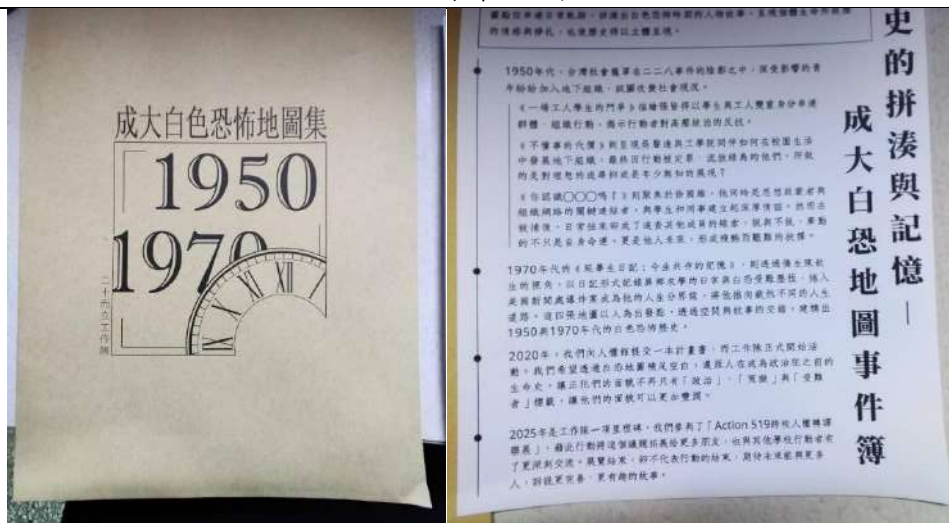 成大白色恐怖地圖集
1950
1970
二十而立工作隊
史的拼湊與記憶—
成大白恐地圖事件簿
的情感與掙扎，也使歷史得以立體呈現。
1950年代，台灣社會籠罩在二二八事件的陰影之中，深受影響的青
年紛紛加入地下組織，試圖改變社會現況。
《一場工人學生的鬥爭》描繪張皆得以學生與工人雙重身分串連
群體、組織行動，揭示行動者對高壓統治的反抗。
《不懂事的代價》則呈現吳聲達與工學院同伴如何在校園生活
中發展地下組織，最終因行動被定罪、流放綠島的他們，所做
的是對理想的追尋抑或是年少無知的展現？
《你認識〇〇〇嗎？》則聚焦於
組織網絡的關鍵連結者，與學生和同事建立起深厚情誼。然而在
被捕後，日常往來卻成了追查其他成員的線索，說與不說，牽動
的不只是自身命運，更是他人未來，形成殘酷而艱難的抉擇。
1970年代的
生的視角，以日記形式記錄異鄉求學的日常與白恐受難歷程，
道路。這四張地圖以人為出發點，透過空間與故事的交錯，建構出
1950與1970年代的白色恐怖歷史。
2020年，我們向人權館提交一本計畫書，而工作隊正式開始活
動。我們希望透過白恐地圖補足空白，還原人在成為政治犯之前的
生命史，讓正化們的面貌不再只有「政治」、「冤獄」與「受難
者」標籤，讓他們的面貌可以更加豐潤。
2025年是工作隊一項里程碑，我們參與了「Action 519跨校人權轉譯
聯展」，藉此行動將這個議題拓展給更多朋友，也與其他學校行動者有
了更深刻交流。展覽結束，卻不代表行動的結束，期待未來能與更多
人，訴說更完善、更有趣的故事。